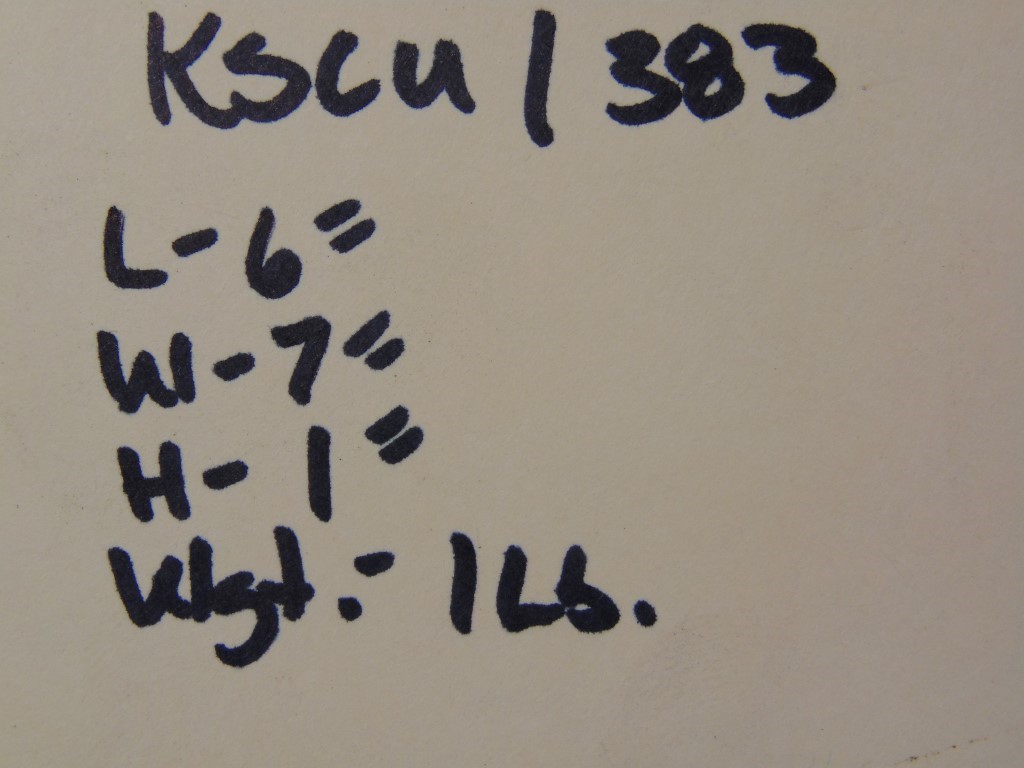 KSCU/383
L-6"
W-7"
H-1"
Wgt.- 1Lb.